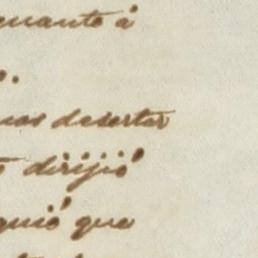 quanto á
o.
nas desertar
dirijió
quió que